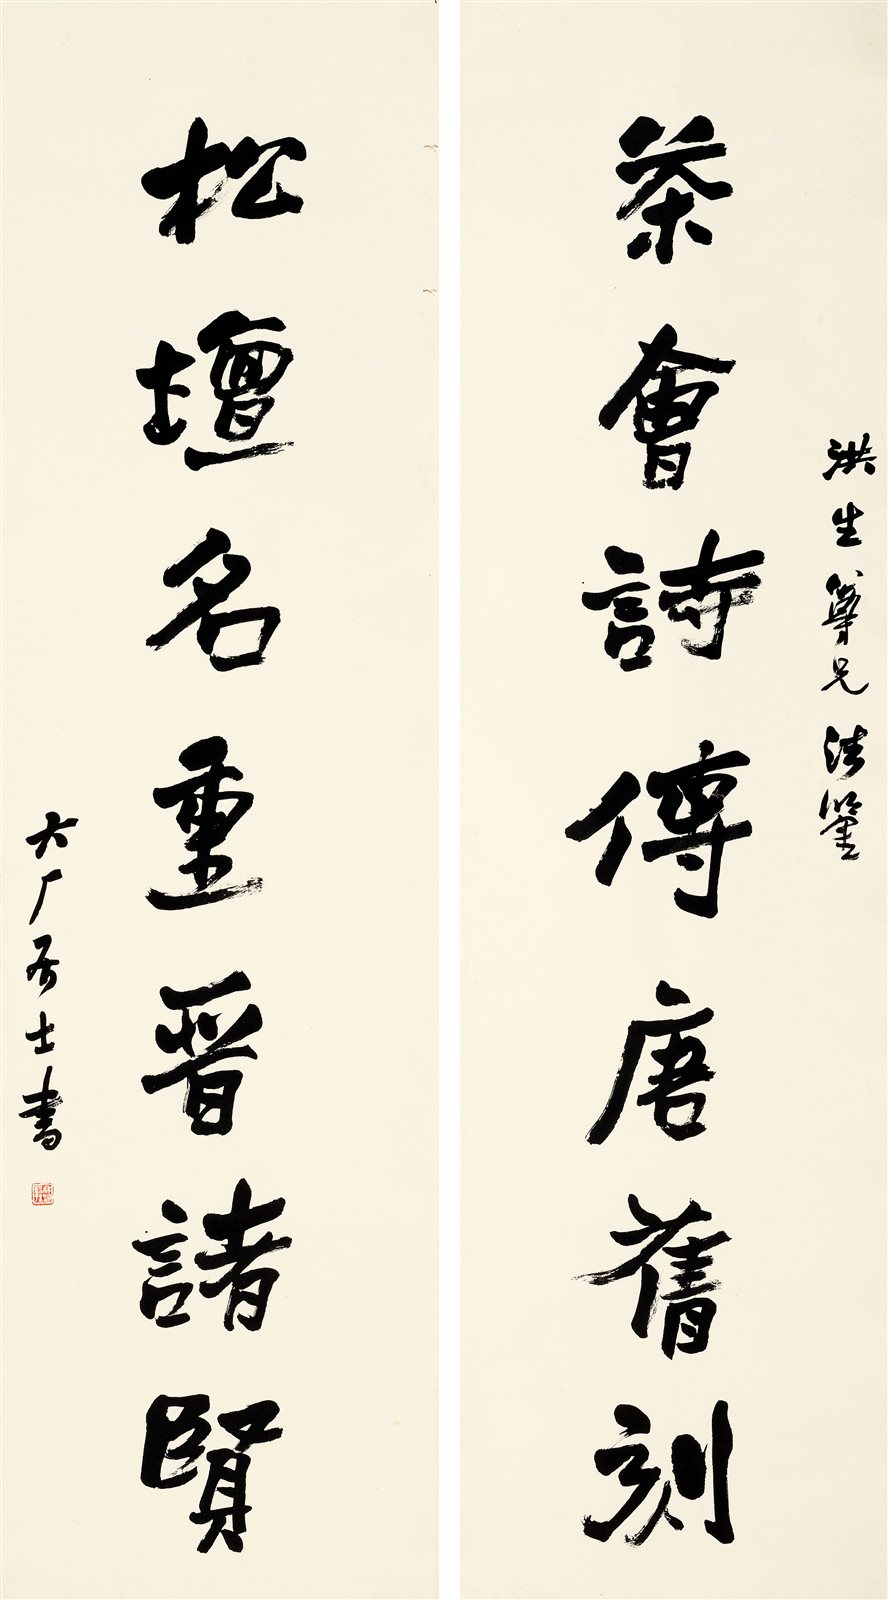 洪生尊兄法鉴
茶會詩傳唐舊刻
松壇名重晉諸賢
大厂居士書